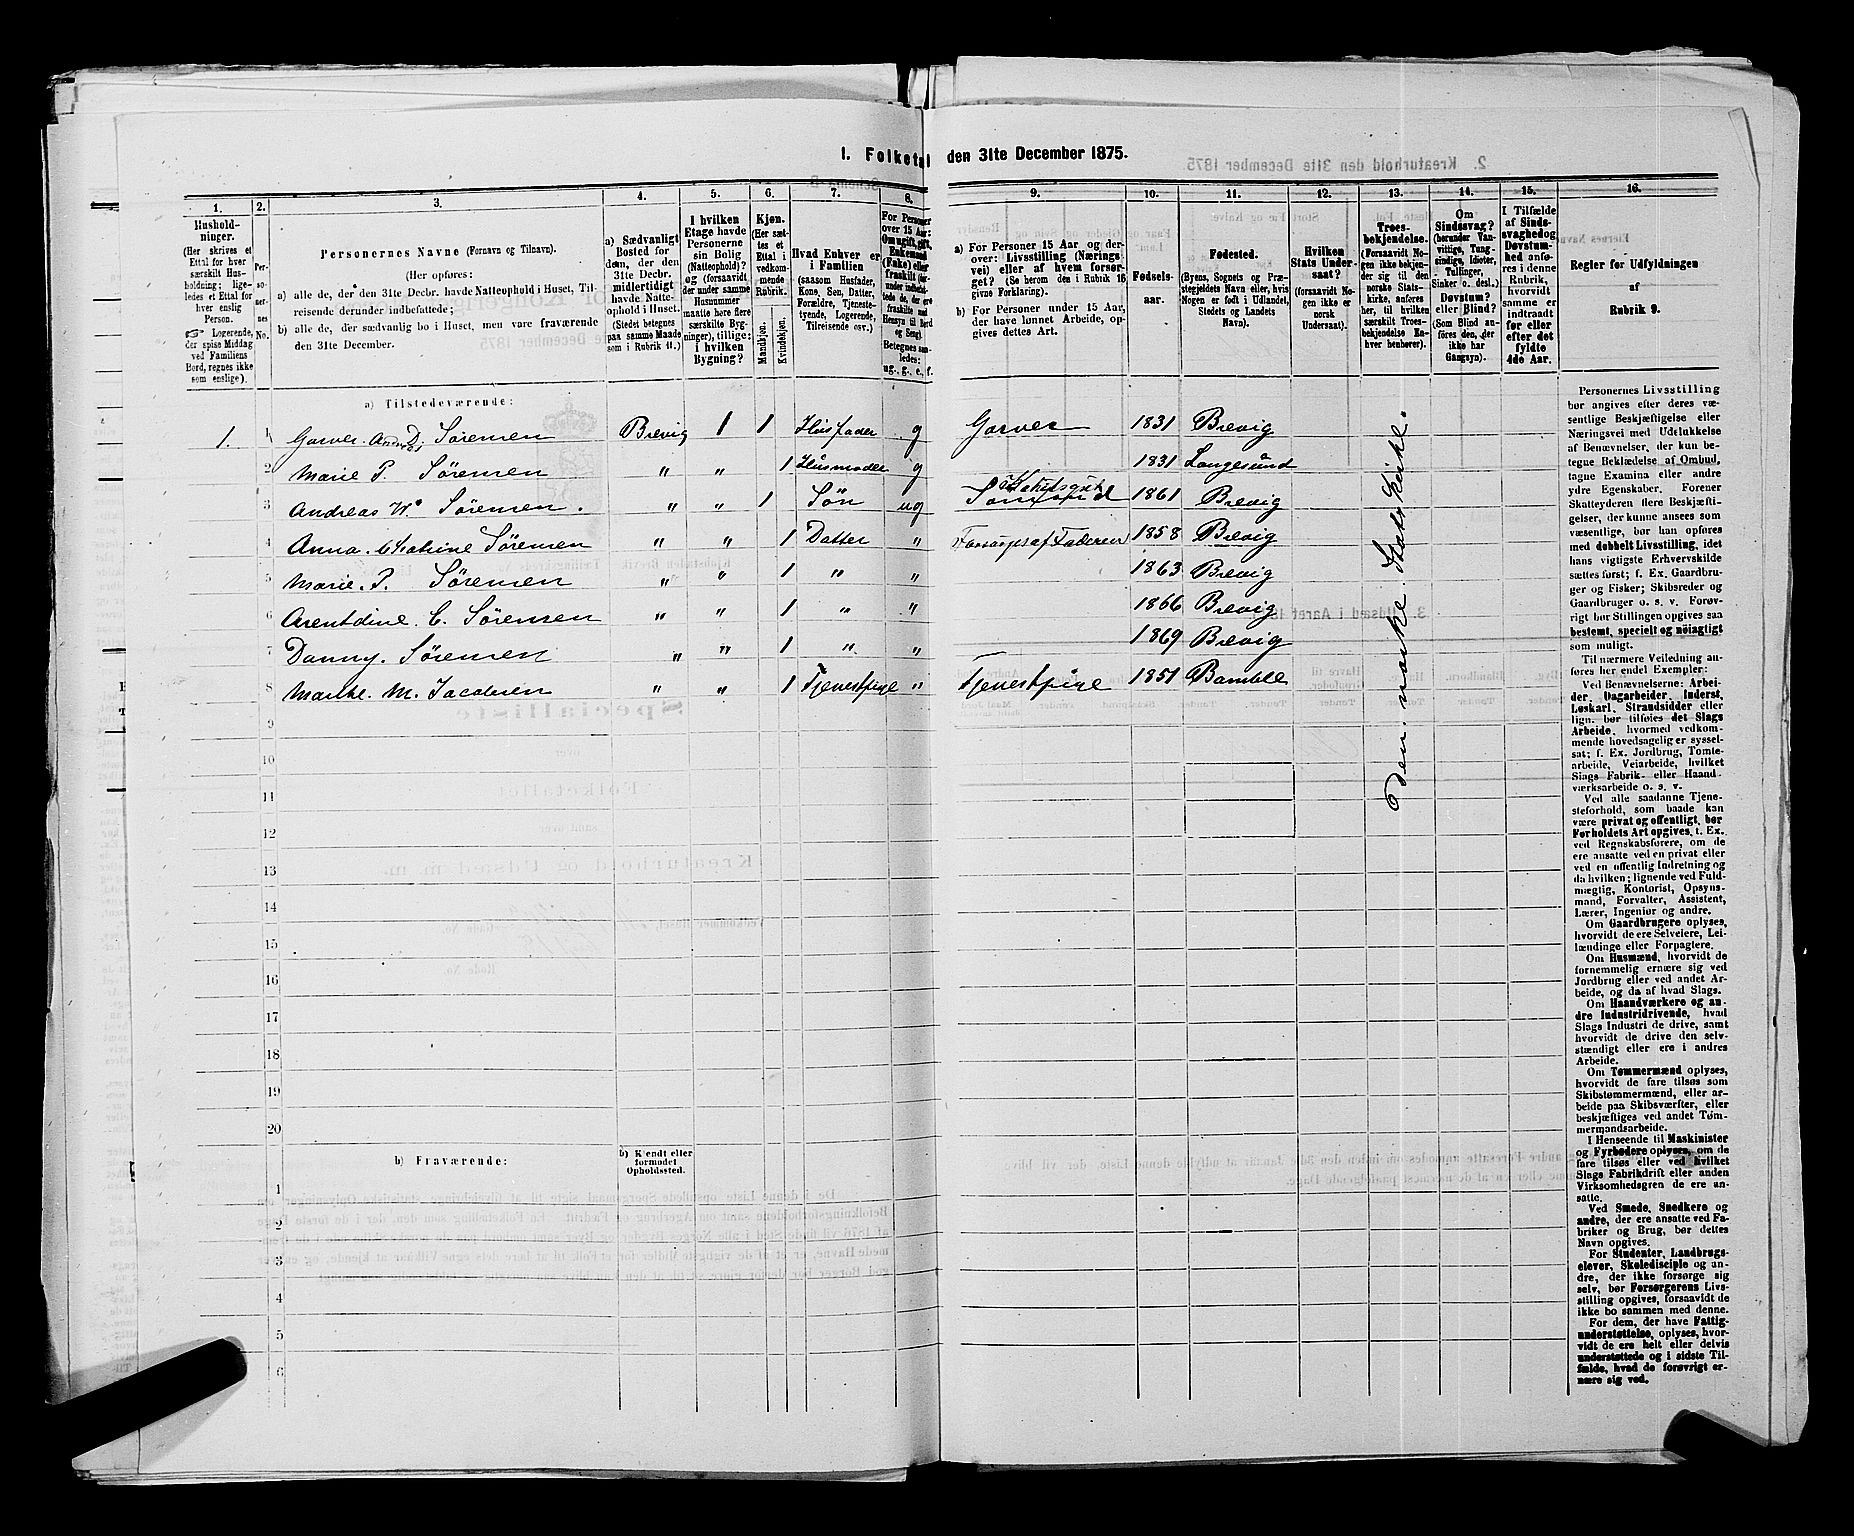 1. Folketal den 31te December 1875.
1. 2. 3. 4. 5. 6. 7. 8. 9. 10. 11. 12. 13. 14. 15. 16.
Hushold-
ninger.
(Her skrives et
Ettal for hver
særskilt Hus-
holdning; lige-
ledes et Ettal for
hver enslig
Person.
☞ Logerende,
der spise Middag
ved Familiens
Bord, regnes ikke
som enslige).
Per-
so-
ner-
nes
No.
Personernes Navne (Fornavn og Tilnavn).
(Her opføres:
a) alle de, der den 31te Decbr. havde Natteophold i Huset, Til-
reisende derunder indbefattede;
b) alle de, der sædvanlig bo i Huset, men vare fraværende
den 31te December.
a) Sædvanligt
Bosted for
dem, der den
31te Decbr.
midlertidigt
havde Natte-
ophold i Huset.
(Stedet betegnes
paa samme Maade
som i Rubrik 11.)
I hvilken
Etage havde
Personerne
sin Bolig
(Natteophold)?
og (forsaavidt
der under samme
Husnummer
maatte høre flere
særskilte Byg-
ninger), tillige:
i hvilken
Bygning?
Kjøn.
(Her sæt-
tes et
Ettal i
vedkom-
mende
Rubrik.
Mandkjøn.
Kvindekjøn.
Hvad Enhver er
i Familien
(saasom Husfader,
Kone, Søn, Datter,
Forældre, Tjeneste-
tyende, Logerende,
Tilreisende osv.)
For Personer
over 15 Aar:
Om ugift, gift,
Enkemand
(Enke) eller
fraskilt
Betegnes saa-
ledes:
ug., g., e., f.
a) For Personer 15 Aar og der-
over: Livsstilling (Nærings-
vei) eller af hvem forsør-
get? (Se herom den i Rubrik 16
givne Forklaring).
b) For Personer under 15 Aar,
der have lønnet Arbeide, op-
gives dettes Art.
Fødsels-
aar.
Fødested.
(Byens, Sognets og Præ-
stegjeldets Navn eller, hvis
Nogen er født i Udlandet,
Stedets og Landets
Navn).
Hvilken
Stats Under-
saat?
(forsaavidt No-
gen ikke er
norsk
Undersaat).
Troes-
bekjendelse.
(Forsaavidt No-
gen ikke bekjen-
der sig til den
norske Stats-
kirke, anføres
her, til hvilken
særskilt Troes-
bekjendelse En-
hver henhører).
Om
Sindssvag?
(herunder Van-
vittige, Tung-
sindige, Idioter,
Tullinger,
Sinker o. desl.)
Døvstum?
eller Blind?
(Som Blind an-
føres den, der
ikke har
Gangsyn).
I Tilfælde
af Sinds-
svaghed og
Døvstum-
hed anfø-
res i denne
Rubrik,
hvorvidt
samme er
indtraadt
før eller
efter det
fyldte
4de Aar.
Regler for Udfyldningen
af
Rubrik 9.
a) Tilstedeværende:
1. 1 Garver Andreas D. Sørensen Brevig 1 1 Husfader g Garver 1831 Brevig
2 Marie P. Sørensen " " 1 Husmoder g 1831 Langesund
3 Andreas W. Sørensen. " " 1 Søn ug 1861 Brevig
4 Anna. Cathrine Sørensen " " 1 Datter " Forsørges af Faderen 1858 Brevig
5 Marie. P. Sørensen " " 1 " " 1863 Brevig
6 Arentdine. C. Sørensen " " 1 " " 1866 Brevig
7 Danny. Sørensen " " 1 " " 1869 Brevig
8 Marthe. M. Jacobsen " " 1 Tjenestpige " Tjenestpige 1851 Bamble
Den norske Statskirke.
9
10
11
12
13
14
15
16
17
18
19
20
b) Fraværende:
b) Kjendt eller
formodet
Opholdssted.
1
2
3
4
5
6
Personernes Livsstilling
bør angives efter deres væ-
sentlige Beskjæftigelse eller
Næringsvei med Udelukkelse
af Benævnelser, der kun be-
tegne Beklædelse af Ombud,
tagne Examina eller andre
ydre Egenskaber. Forener
Skatteyderen flere Beskjæfti-
gelser, der kunne ansees som
væsentlige, bør han opføres
med dobbelt Livsstilling, idet
hans vigtigste Erhvervskilde
sættes først; f. Ex. Gaardbru-
ger og Fisker; Skibsreder og
Gaardbruger o. s. v. Forøv-
rigt bør Stillingen opgives saa
bestemt, specielt og nöiagtigt
som muligt.
Til nærmere Veiledning an-
føres her endel Exempler:
Ved Benævnelserne: Arbei-
der, Dagarbeider, Inderst,
Løskarl, Strandsidder eller
lign. bør tilføies det Slags
Arbeide, hvormed vedkom-
mende hovedsagelig er syssel-
sat; f. Ex. Jordbrug, Tomte-
arbeide, Veiarbeide, hvilket
Slags Fabrik- eller Haand-
værksarbeide o. s. v.
Ved alle saadanne Tjene-
steforhold, som baade kan
være privat og offentligt, bør
Forholdets Art opgives, t. Ex.
ved Regnskabsførere, om de
ere ansatte ved en privat eller
ved en offentlig Indretning og
da hvilken; lignende ved Fuld-
mægtig, Kontorist, Opsyns-
mand, Forvalter, Assistent,
Lærer, Ingeniør og andre.
Om Gaardbrugere oplyses,
hvorvidt de ere Selveiere, Lei-
lændinge eller Forpagtere.
Om Husmænd, hvorvidt de
fornemmelig ernære sig ved
Jordbrug eller ved andet Ar-
beide, og da af hvad Slags.
Om Haandværkere og an-
dre Industridrivende, hvad
Slags Industri de drive, samt
hvorvidt de drive den selv-
stændigt eller ere i andres
Arbeide.
Om Tømmermænd oplyses,
hvorvidt de fare tilsøs som
Skibstømmermænd, eller ar-
beide paa Skibsværfter, eller
beskjæftiges ved andet Tøm-
mermandsarbeide.
I Henseende til Maskinister
og Fyrbødere oplyses, om de
fare tilsøs eller ved hvilket
Slags Fabrikdrift eller anden
Virksomhedsgren de ere an-
satte.
Ved Smede, Snedkere og
andre, der ere ansatte ved Fa-
briker og Brug, bør dettes
Navn opgives.
For Studenter, Landbrugs-
elever, Skoledisciple og an-
dre, der ikke forsørge sig
selv, bør Forsørgerens Livs-
stilling opgives, forsaavidt de
ikke bo sammen med denne.
For dem, der have Fattig-
understøttelse, oplyses, hvor-
vidt de ere helt eller delvis
understøttede og i sidste Til-
fælde, hvad de forøvrigt er-
nære sig ved.